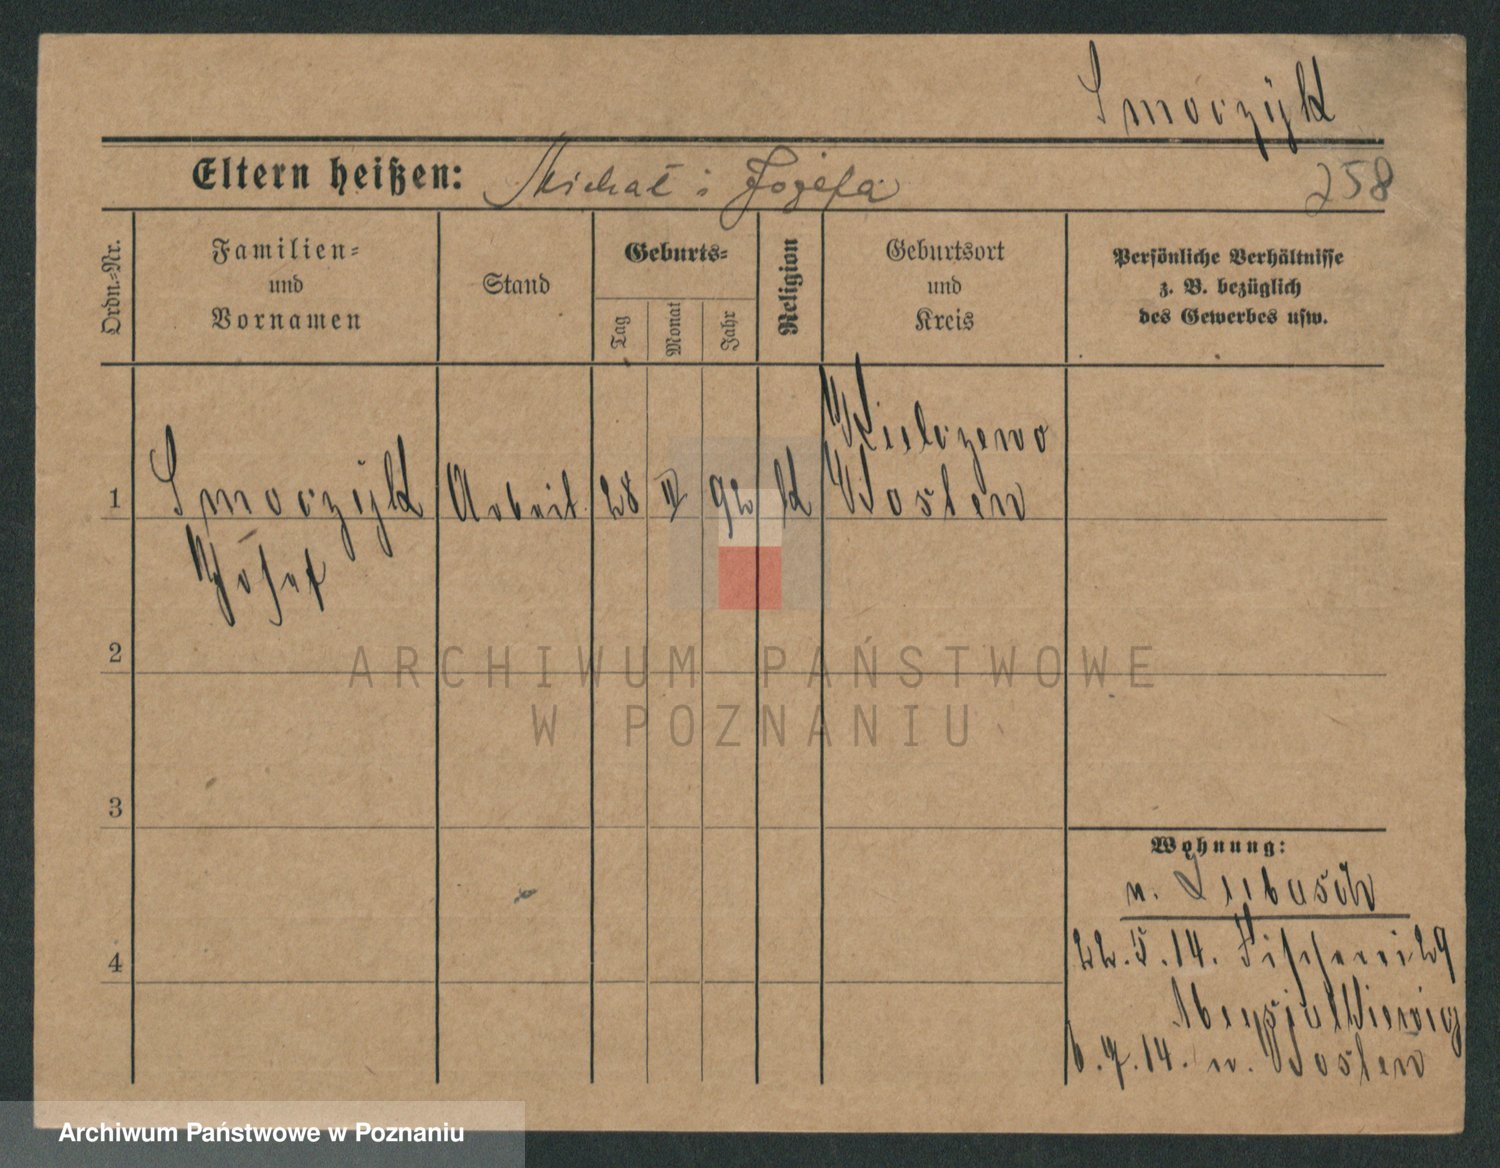 Smoczyk
Eltern heißen: Michał i Józefa
258
Ordn.-Nr.
Familien-
und
Vornamen
Stand
Geburts-
Tag
Monat
Jahr
Religion
Geburtsort
und
Kreis
Persönliche Verhältnisse
z. B. bezüglich
des Gewerbes usw.
1
Smoczyk Arbeit. 28 92 k
Josef
Kielczewo
Kosten
2
ARCHIWUM PAŃSTWOWE
W POZNANIU
3
4
Wohnung:
n.
22.5.14. Fischerei 29
6.7.14. n. Kosten
Archiwum Państwowe w Poznaniu